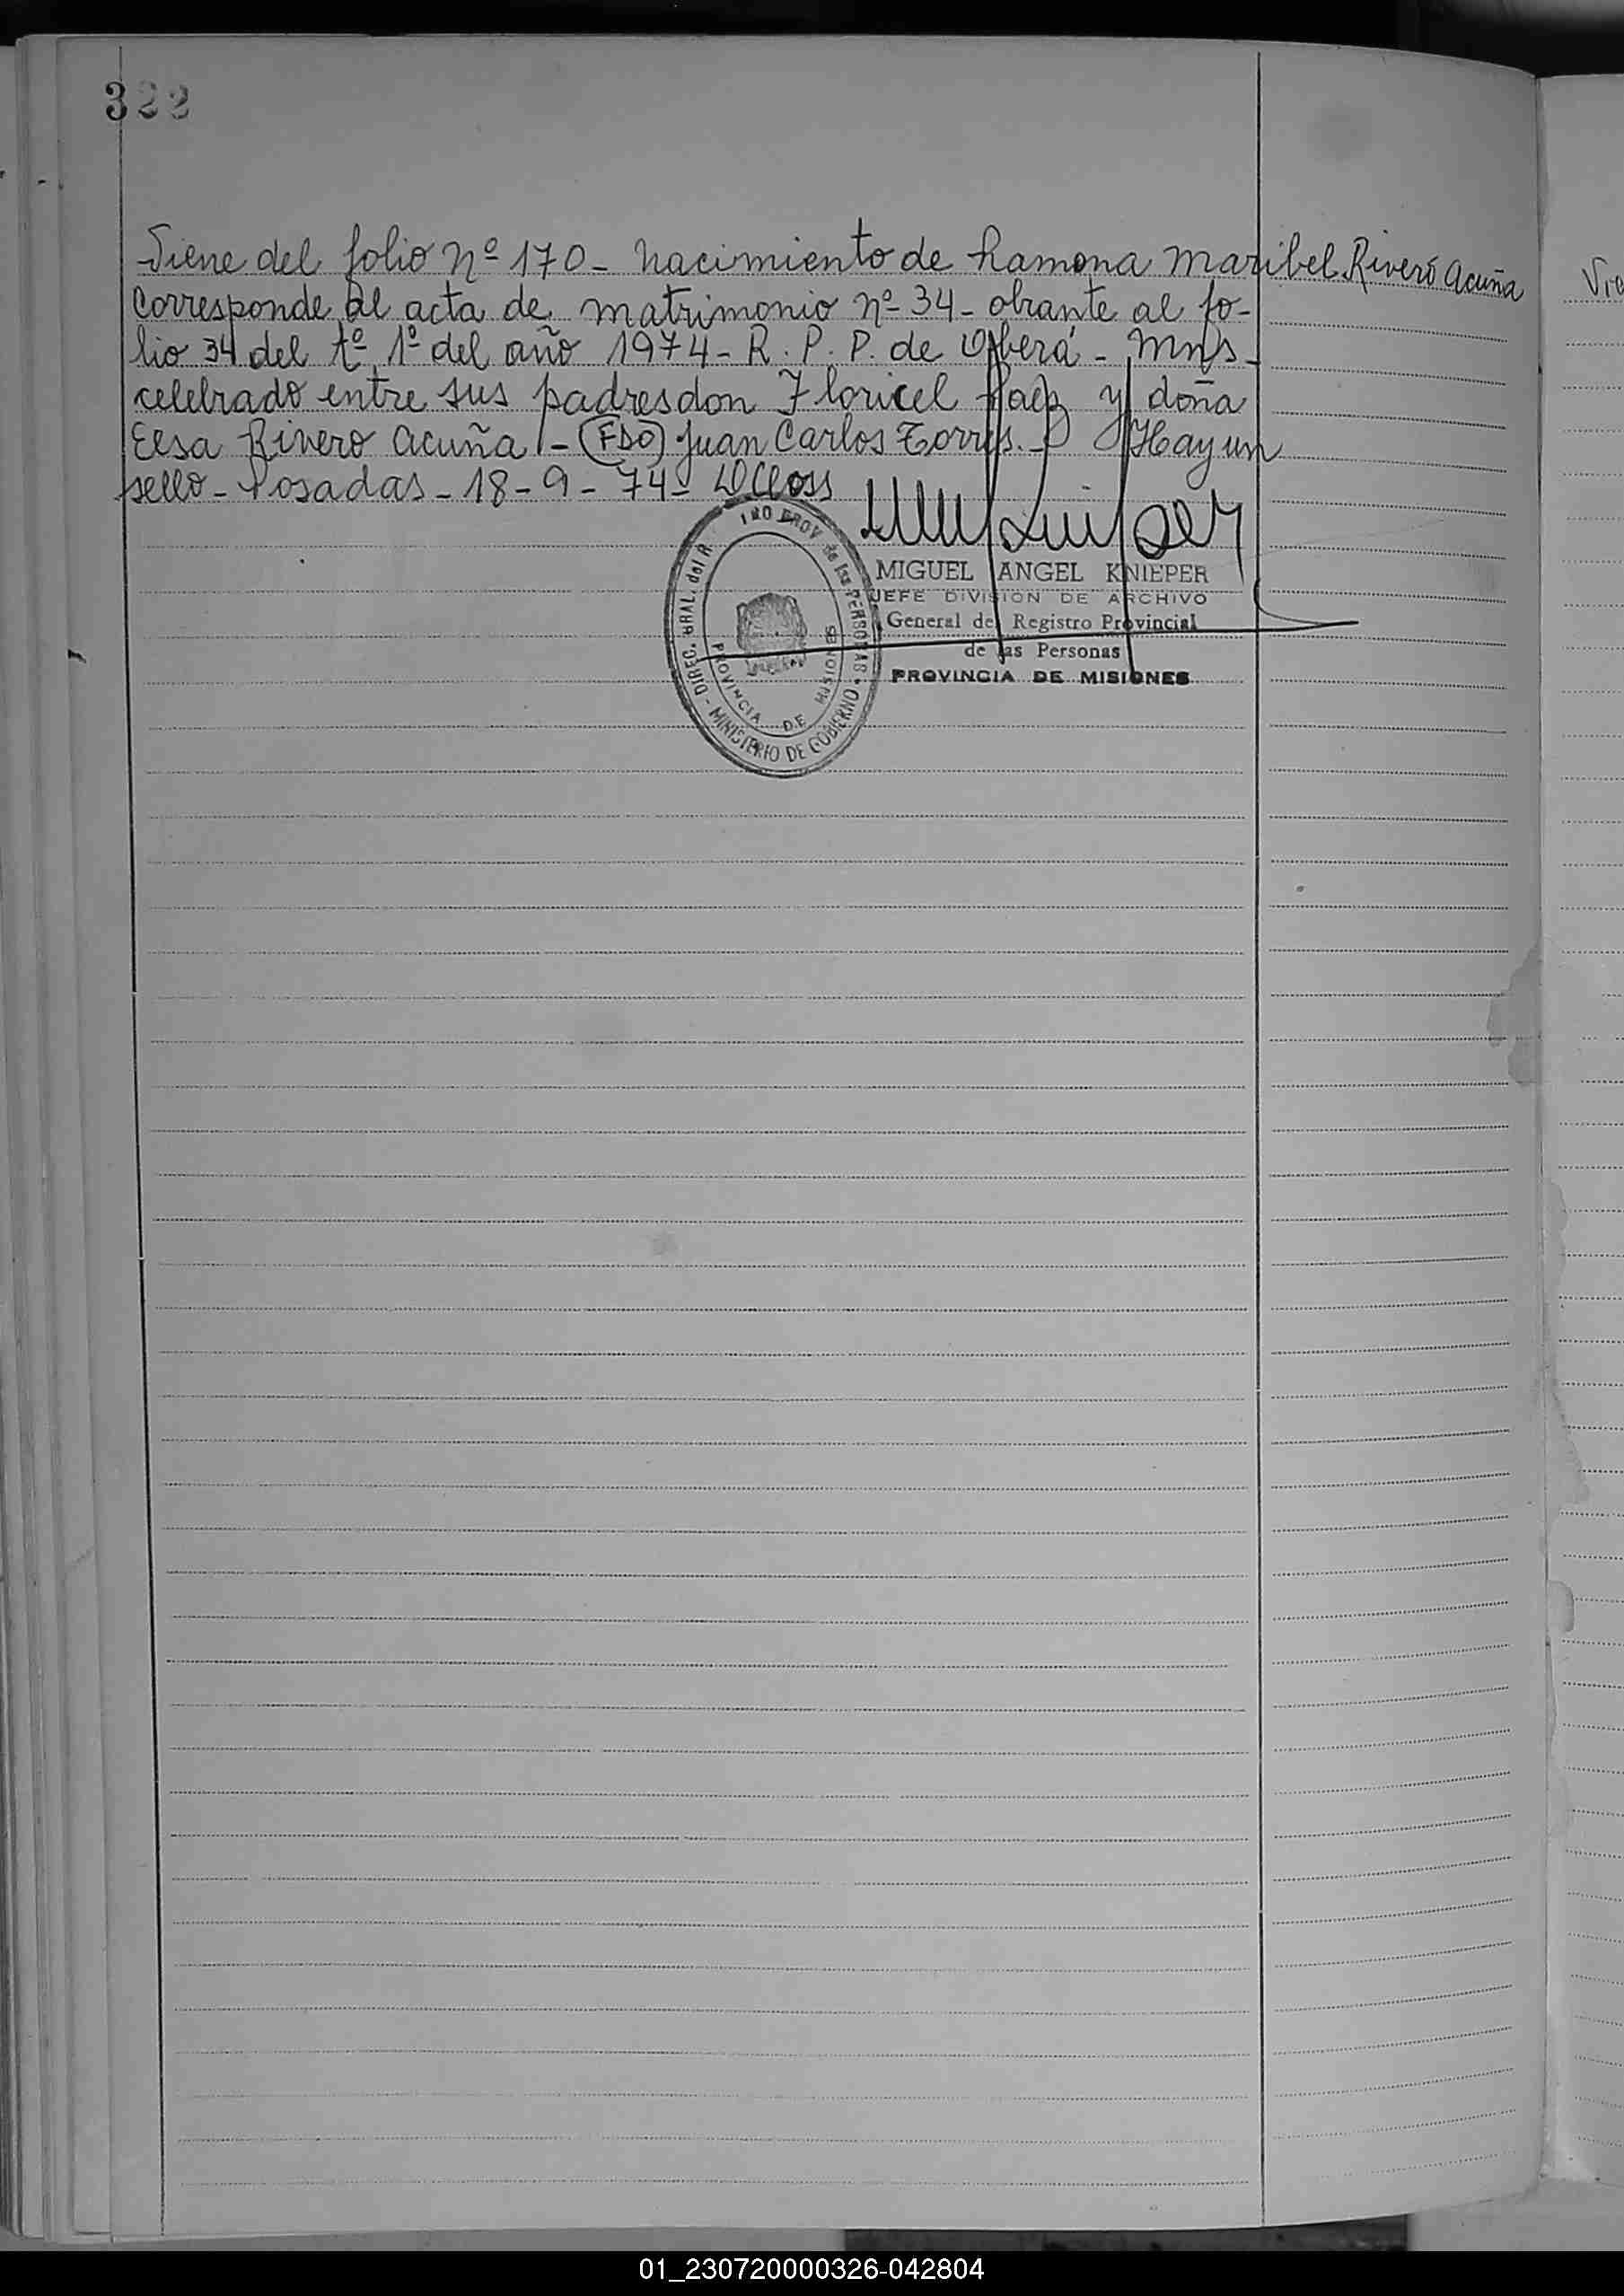 322
Viene del folio Nº 170 - nacimiento de Ramona Maribel Rivero Acuña
Corresponde al acta de matrimonio nº 34 - obrante al fo-
lio 34 del tº 1º del año 1974 - R. P. P. de Oberá - Mns -
celebrado entre sus padres don Floricel Paez y doña
Elsa Rivero Acuña - (FDO) Juan Carlos Torres. - Hay un
sello - Posadas - 18 - 9 - 74 -
MIGUEL ANGEL KNIEPER
JEFE DIVISION DE ARCHIVO
General del Registro Provincial
de las Personas
PROVINCIA DE MISIONES
DIREC. GRAL. del R PROV de las PERSONAS
MINISTERIO DE GOBIERNO
PROVINCIA DE MISIONES
01_230720000326-042804